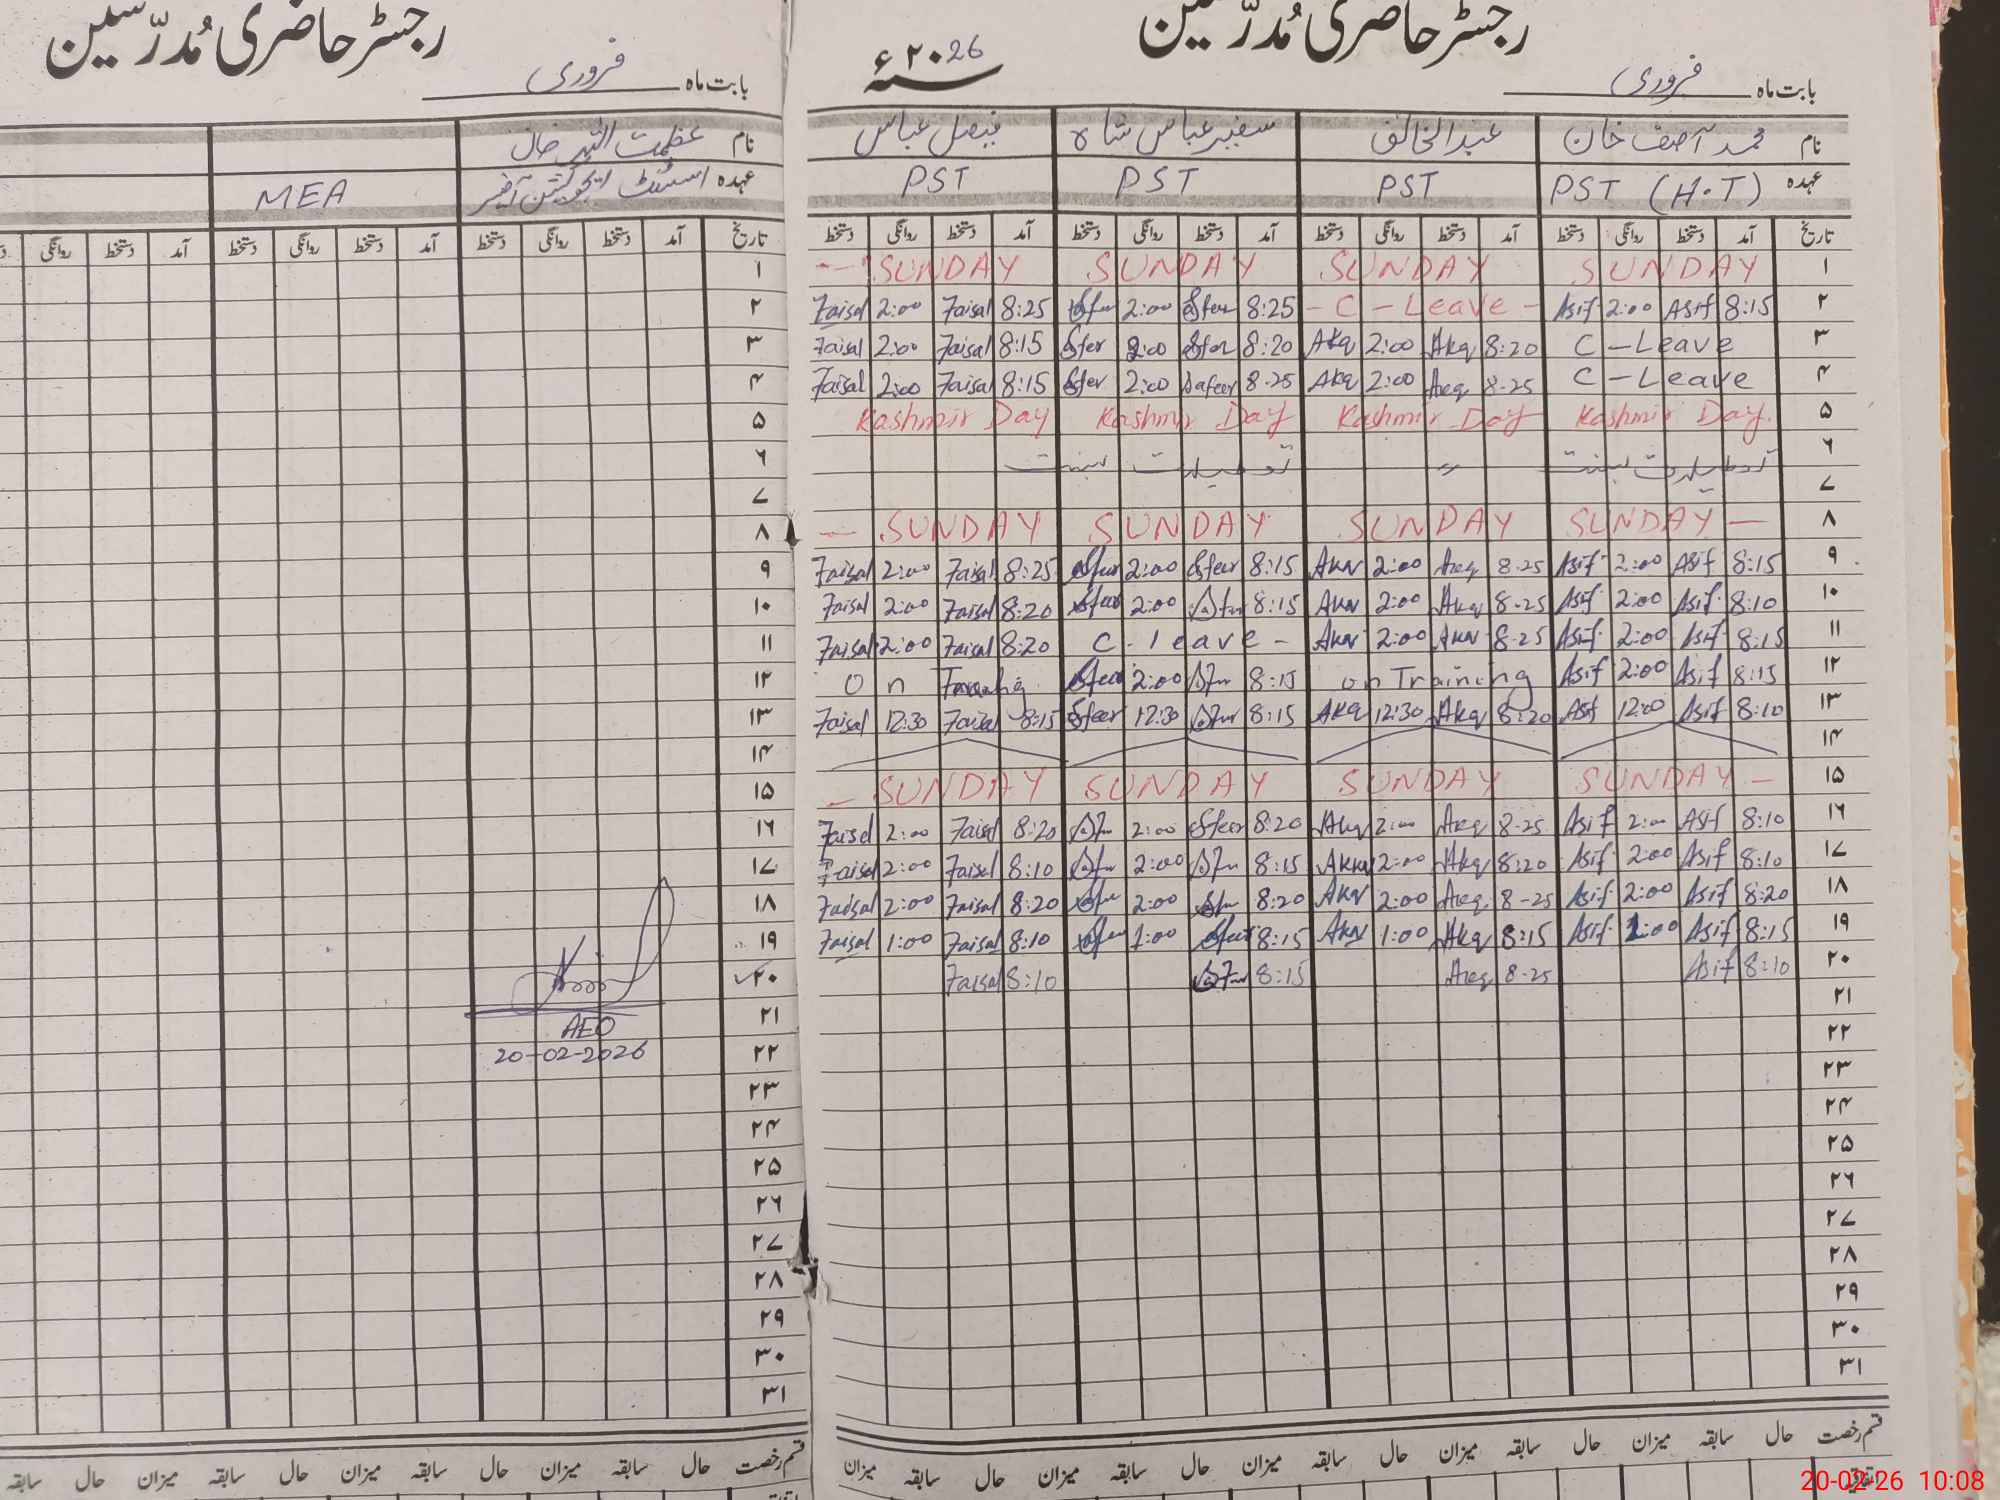 رجسٹر حاضری مُدرّسین
بابت ماہ فروری ۲۰26ء
نام محمد آصف خان عبدالخالق سفیر عباس شاہ فیصل عباس
عہدہ PST (H.T) PST PST PST
تاریخ آمد دستخط روانگی دستخط آمد دستخط روانگی دستخط آمد دستخط روانگی دستخط آمد دستخط روانگی دستخط
۱ SUNDAY SUNDAY SUNDAY SUNDAY
۲ 8:15 Asif 2:00 Asif - C - Leave - 8:25 Sfeer 2:00 8:25 Faisal 2:00 Faisal
۳ C - Leave 8:20 Akq 2:00 Akq 8:20 Sfer 2:00 Sfer 8:15 Faisal 2:00 Faisal
۴ C - Leave 8-25 Aeq 2:00 Akq 8-25 Safeer 2:00 Sfer 8:15 Faisal 2:00 Faisal
۵ Kashmir Day. Kashmir Day Kashmir Day Kashmir Day
۶ تعطیلات بسنت 〃 تعطیلات بسنت
۷
۸ SUNDAY — SUNDAY SUNDAY — SUNDAY
۹ 8:15 Asif 2:00 Asif 8-25 Aeq 2:00 Akq 8:15 Sfeer 2:00 Sfeer 8:25 Faisal 2:00 Faisal
۱۰ 8:10 Asif 2:00 Asif 8-25 Akq 2:00 Akq 8:15 2:00 Sfeer 8:20 Faisal 2:00 Faisal
۱۱ 8:15 Asif 2:00 Asif 8-25 Akq 2:00 Akq C - leave - 8:20 Faisal 2:00 Faisal
۱۲ 8:15 Asif 2:00 Asif on Training 8:15 2:00 Sfeer On
۱۳ 8:10 Asif 12:00 Asif 8:20 Akq 12:30 Akq 8:15 12:30 Sfeer 8:15 Faisal 12:30 Faisal
۱۴
۱۵ SUNDAY — SUNDAY SUNDAY — SUNDAY
۱۶ 8:10 Asif 2:00 Asif 8-25 Aeq 2:00 Akq 8:20 Sfeer 2:00 8:20 Faisal 2:00 Faisal
۱۷ 8:10 Asif 2:00 Asif 8:20 Akq 2:00 Akq 8:15 2:00 8:10 Faisal 2:00 Faisal
۱۸ 8:20 Asif 2:00 Asif 8-25 Aeq 2:00 Akq 8:20 2:00 8:20 Faisal 2:00 Faisal
۱۹ 8:15 Asif 1:00 Asif 8:15 Akq 1:00 Akq 8:15 Sfeer 1:00 8:10 Faisal 1:00 Faisal
۲۰ 8:10 Asif 8-25 Aeq 8:15 8:10 Faisal
۲۱
۲۲
۲۳
۲۴
۲۵
۲۶
۲۷
۲۸
۲۹
۳۰
۳۱
قسم رخصت حال سابقہ میزان حال سابقہ میزان حال سابقہ میزان حال سابقہ میزان
رجسٹر حاضری مُدرّسین
بابت ماہ فروری
نام عظمت اللہ خان
عہدہ اسسٹنٹ ایجوکیشن آفیسر MEA
تاریخ آمد دستخط روانگی دستخط آمد دستخط روانگی دستخط آمد دستخط روانگی
۱
۲
۳
۴
۵
۶
۷
۸
۹
۱۰
۱۱
۱۲
۱۳
۱۴
۱۵
۱۶
۱۷
۱۸
۱۹
۲۰
۲۱ AEO
۲۲ 20-02-2026
۲۳
۲۴
۲۵
۲۶
۲۷
۲۸
۲۹
۳۰
۳۱
قسم رخصت حال سابقہ میزان حال سابقہ میزان حال سابقہ میزان حال سابقہ
20-02-26 10:08